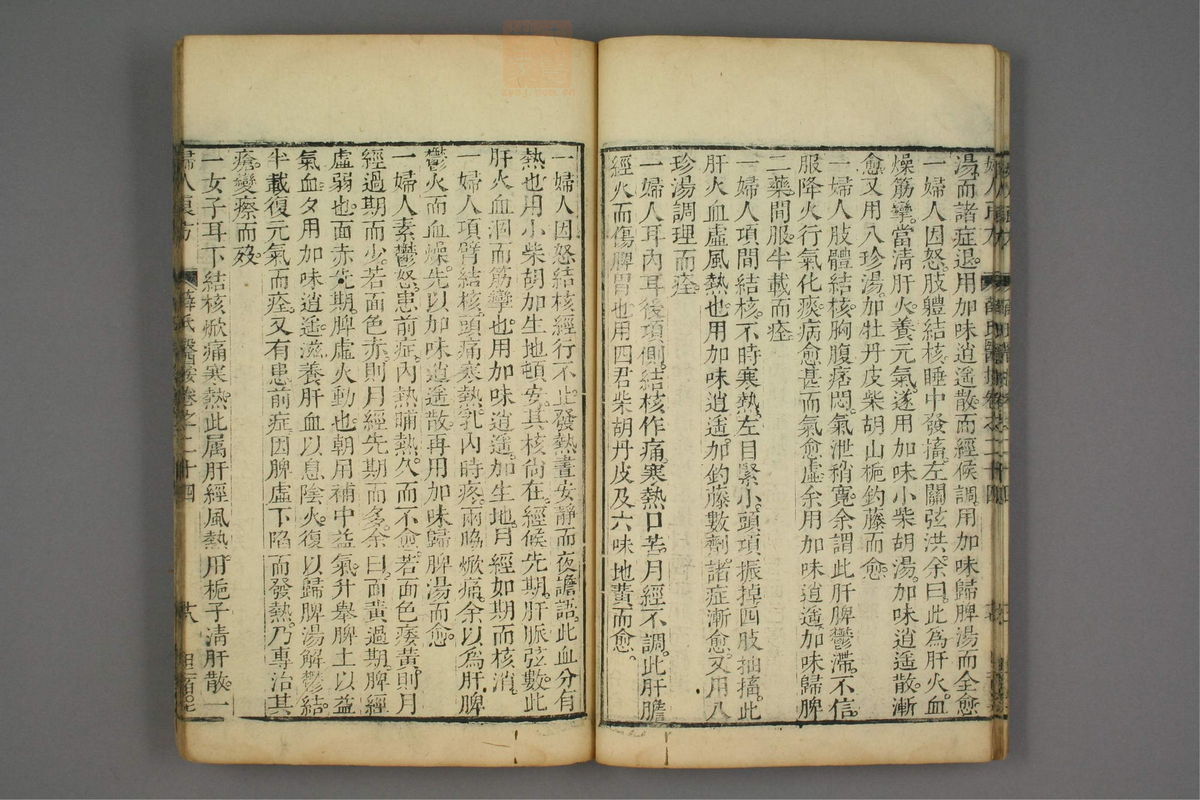 湯而諸症退用加味逍遥散而經候調用加味歸脾湯而全愈
一婦人因怒肢體結核睡中發搐左關弦洪余曰此爲肝火血
燥筋攣當清肝火養元氣遂用加味小柴胡湯加味逍遥散漸
愈又用八珍湯加牡丹皮柴胡山梔釣藤而愈
一婦人肢體結核胸腹痞悶氣泄稍寛余謂此肝脾鬱滯不信
服降火行氣化痰病愈甚而氣愈虛余用加味逍遥加味歸脾
二藥間服半載而痊
一婦人項間結核不時寒熱左目緊小頭項振掉四肢抽搐此
肝火血虛風熱也用加味逍遥加釣藤數劑諸症漸愈又用八
珍湯調理而痊
一婦人耳內耳後項側結核作痛寒熱口苦月經不調此肝膽
經火而傷脾胃也用四君柴胡丹皮及六味地黄而愈
一婦人因怒結核經行不止發熱晝安靜而夜譫語此血分有
熱也用小柴胡加生地頓安其核尙在經候先期肝脈弦數此
肝火血涸而筋攣也用加味逍遥加生地月經如期而核消
一婦人項臂結核頭痛寒熱乳內時疼兩脇焮痛余以爲肝脾
鬱火而血燥先以加味逍遥散再用加味歸脾湯而愈
一婦人素鬱怒患前症內熱晡熱久而不愈若面色痿黄則月
經過期而少若面色赤則月經先期而多余曰面黄過期脾經
虛弱也面赤先期脾虛火動也朝用補中益氣升舉脾土以益
氣血夕用加味逍遥滋養肝血以息陰火復以歸脾湯解鬱結
半載復元氣而痊又有患前症因脾虛下陷而發熱乃專治其
瘡變瘵而歿
一女子耳下結核焮痛寒熱此属肝經風熱用梔子清肝散一
婦人良方
薛氏醫按卷之二十四